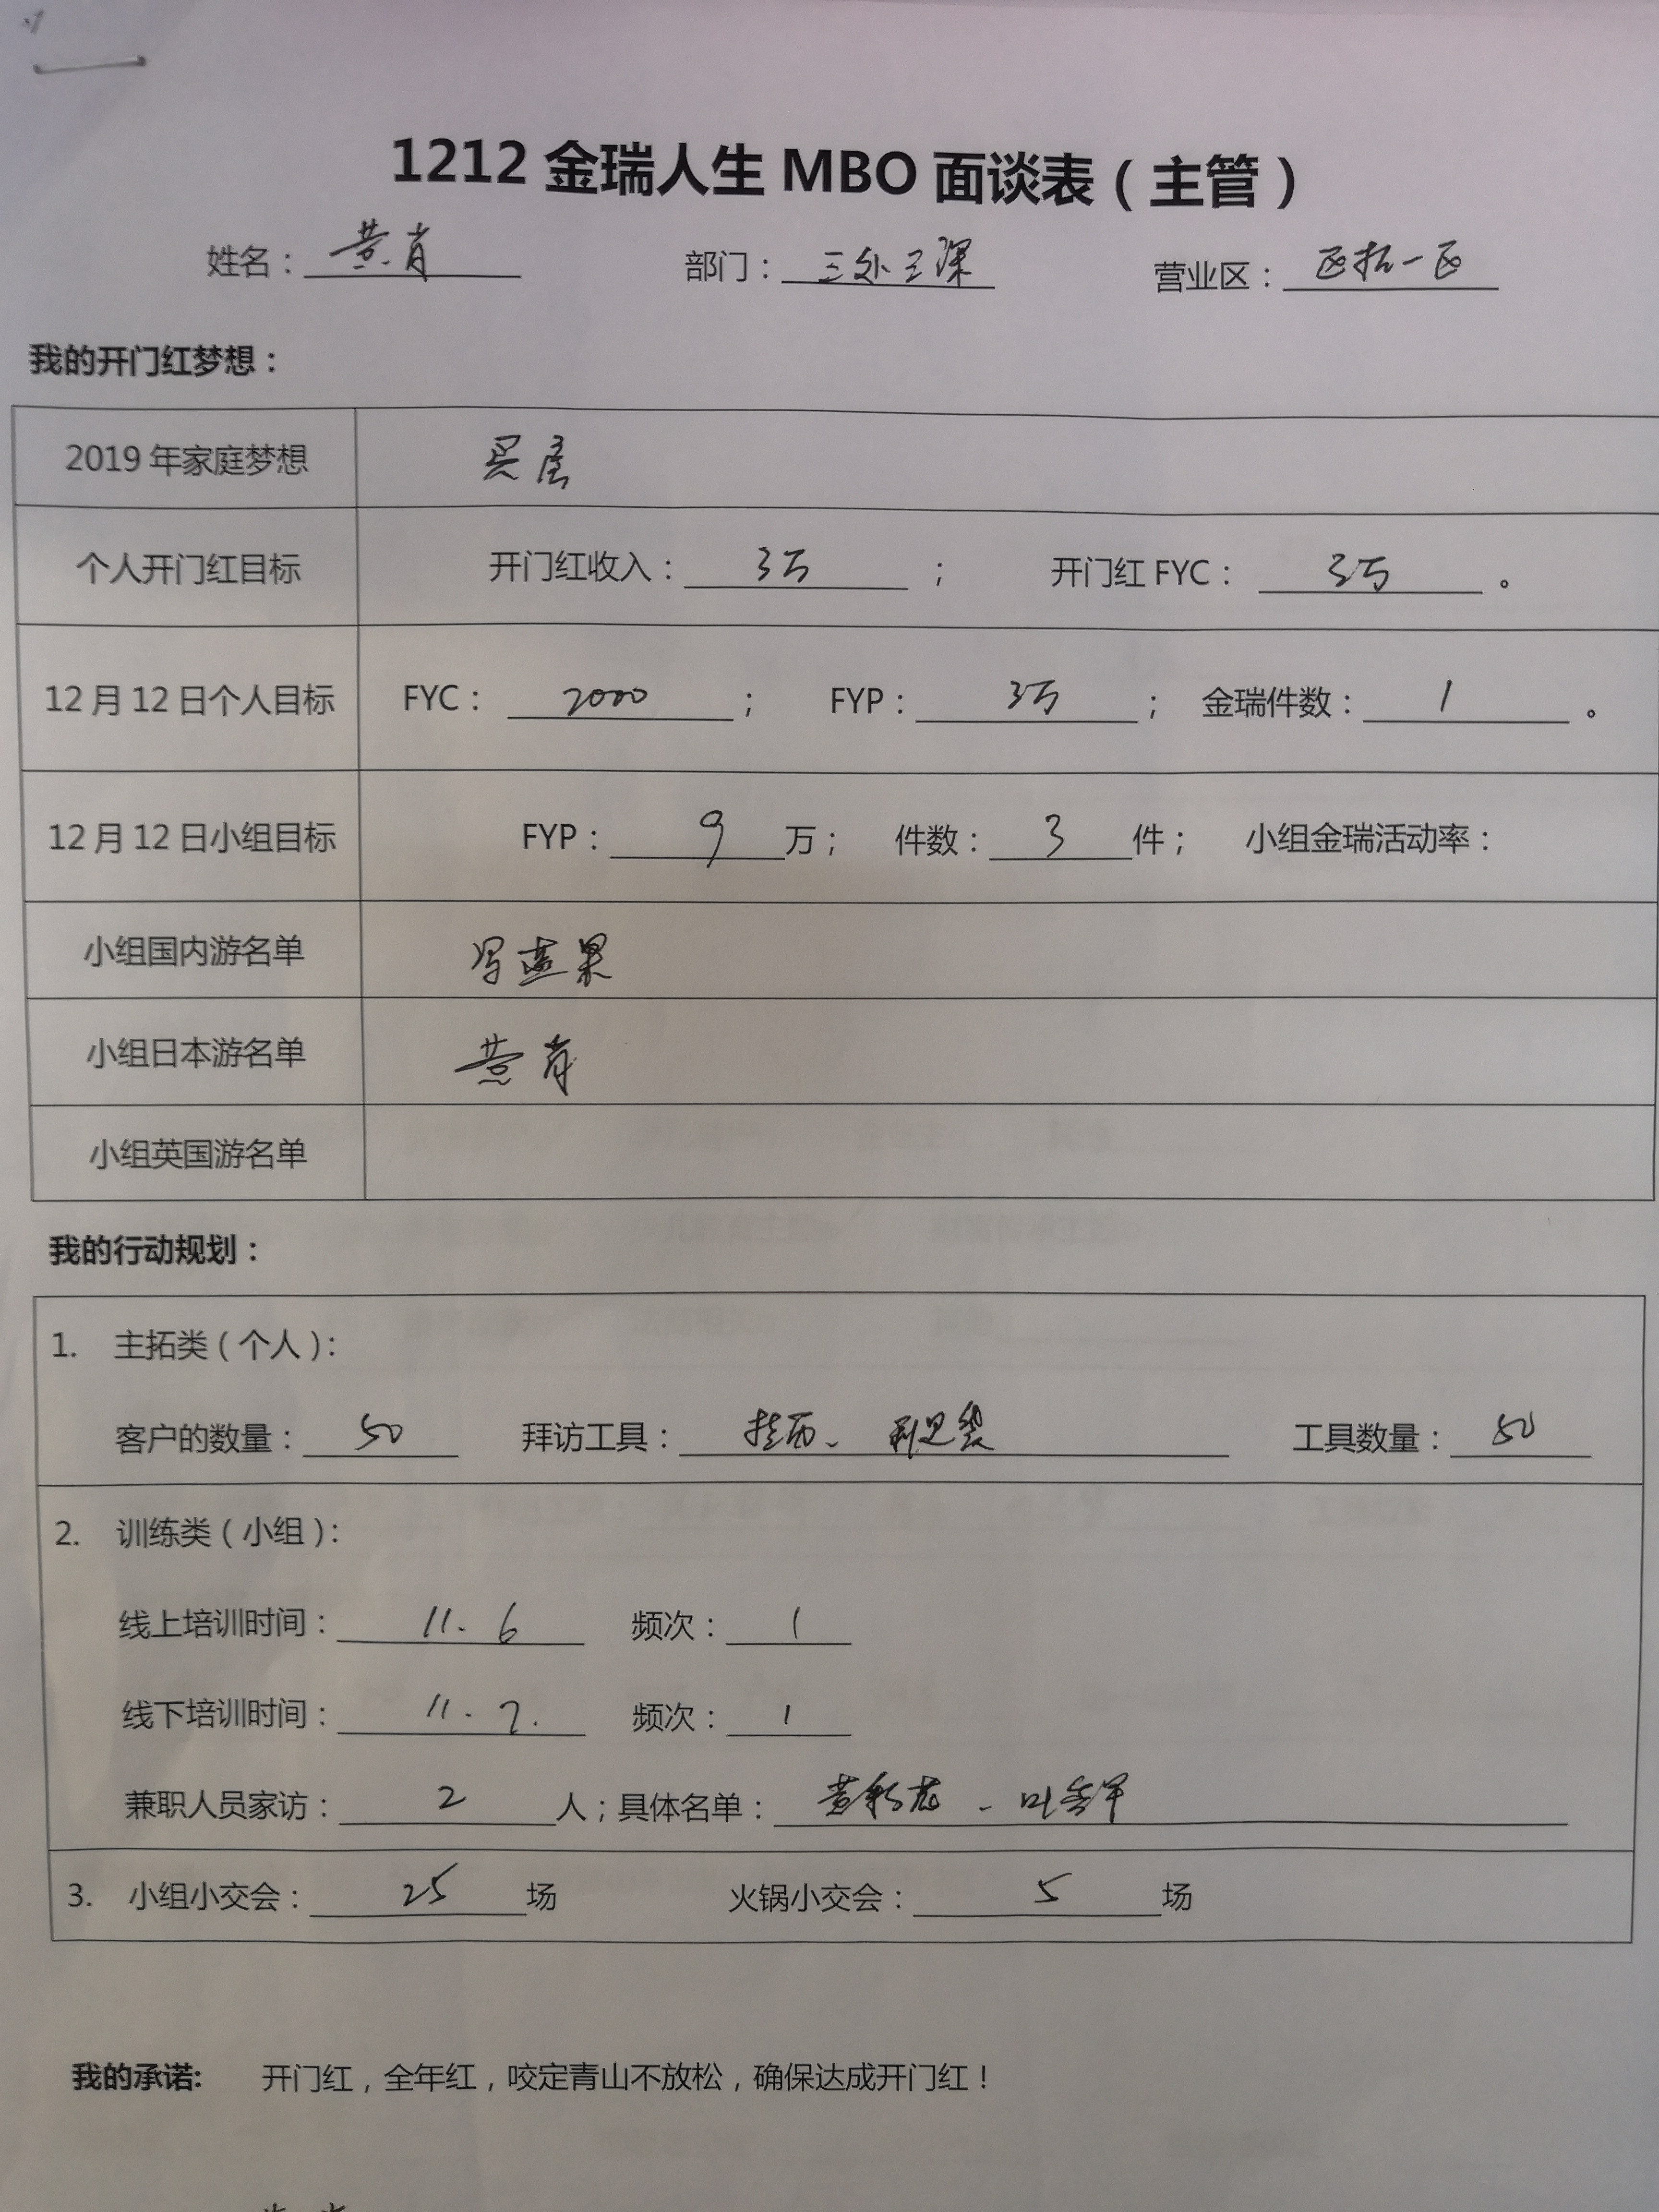 1212 金瑞人生 MBO 面谈表（主管）
姓名：黄肖 部门：三处三课 营业区：区拓一区
我的开门红梦想：
2019 年家庭梦想 买房
个人开门红目标 开门红收入：3万； 开门红 FYC：3万。
12 月 12 日个人目标 FYC：2000； FYP：3万； 金瑞件数：1。
12 月 12 日小组目标 FYP：9万； 件数：3件； 小组金瑞活动率：
小组国内游名单
小组日本游名单 黄肖
小组英国游名单
我的行动规划：
1. 主拓类（个人）：
客户的数量：50 拜访工具： 工具数量：50
2. 训练类（小组）：
线上培训时间：11.6 频次：1
线下培训时间：11.7. 频次：1
兼职人员家访：2人；具体名单：
3. 小组小交会：25场 火锅小交会：5场
我的承诺: 开门红，全年红，咬定青山不放松，确保达成开门红！